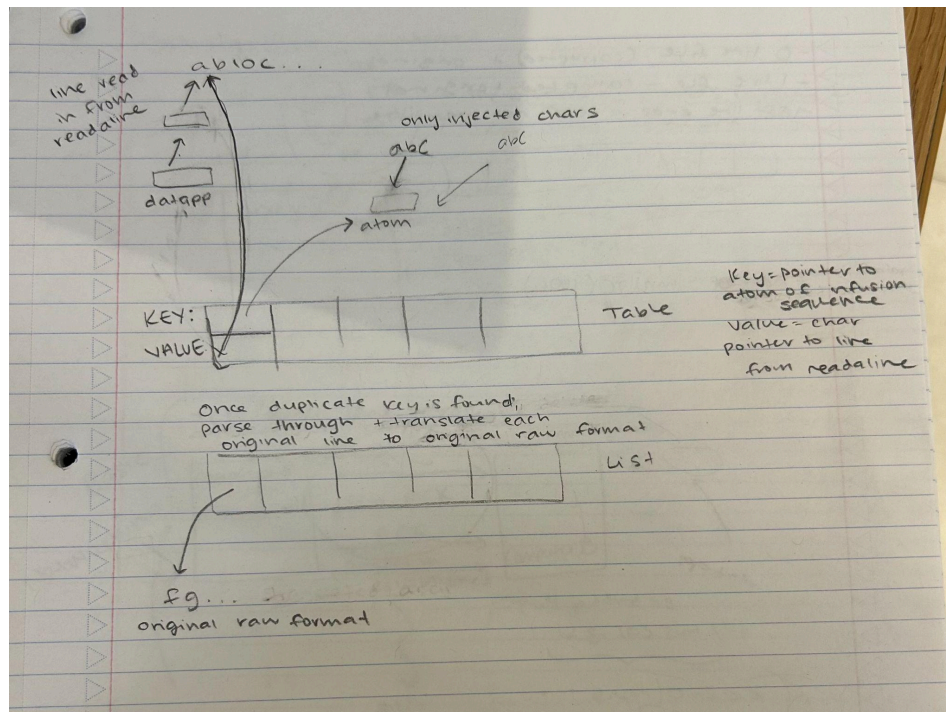 abloc...
line read
in from
readaline
datapp
only injected chars
abc
abc
atom
KEY:
VALUE
Table
Key=pointer to
atom of infusion
sequence
value = char
pointer to line
from readaline
Once duplicate key is found,
parse through + translate each
original line to original raw format
List
fg...
original raw format